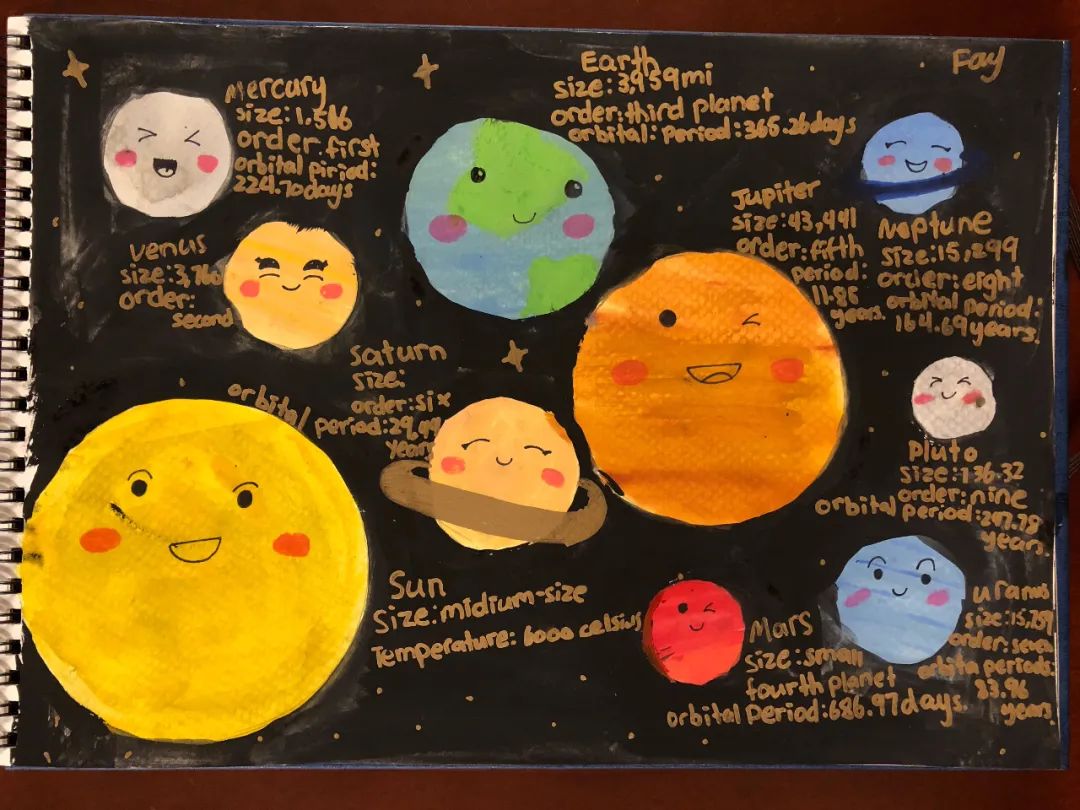 Fay
Mercury
size:1.516
order.first
orbital piriod:
224.70days
Earth
size:3,959mi
order:third planet
orbital: Period:365.26days
Venus
size:3,760
order:
second
Jupiter
size:43,441
order:fifth
period:
11.86
years.
Neptune
size:15,299
order:eight
orbital period:
164.69years.
Saturn
size:
order:six
orbital period:29,
years
Pluto
size:136.32
order:nine
orbital period:247.78
years.
Sun
Size:midium-size
Temperature: 6000 celsius
Mars
size:small
fourth planet
orbital Period:686.97days.
uranus
size:15,759
order:seven
orbita period:
83.96
years